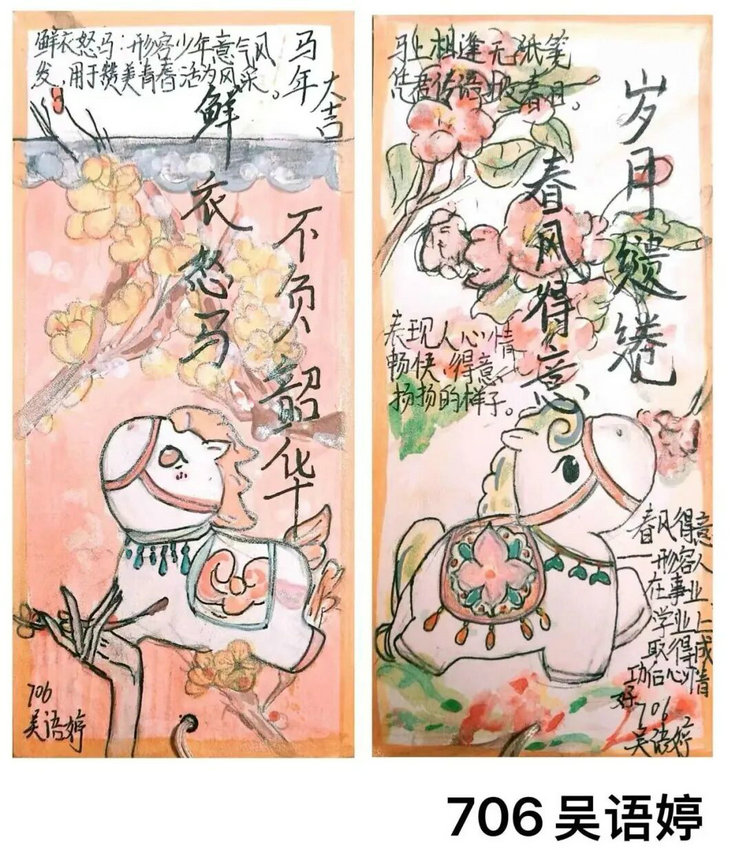 鲜衣怒马：形容少年意气风
发，用于赞美青春活为风采。
马年
大吉
鲜衣怒马
不负韶华
706
吴语婷
马上相逢无纸笔
凭君传语报春日。
岁月缱绻
春风得意
表现人心情
畅快，得意
扬扬的样子。
春风得意
—形容人
在事业、
学业上
取得成
功后心情
好
706
吴语婷
706吴语婷